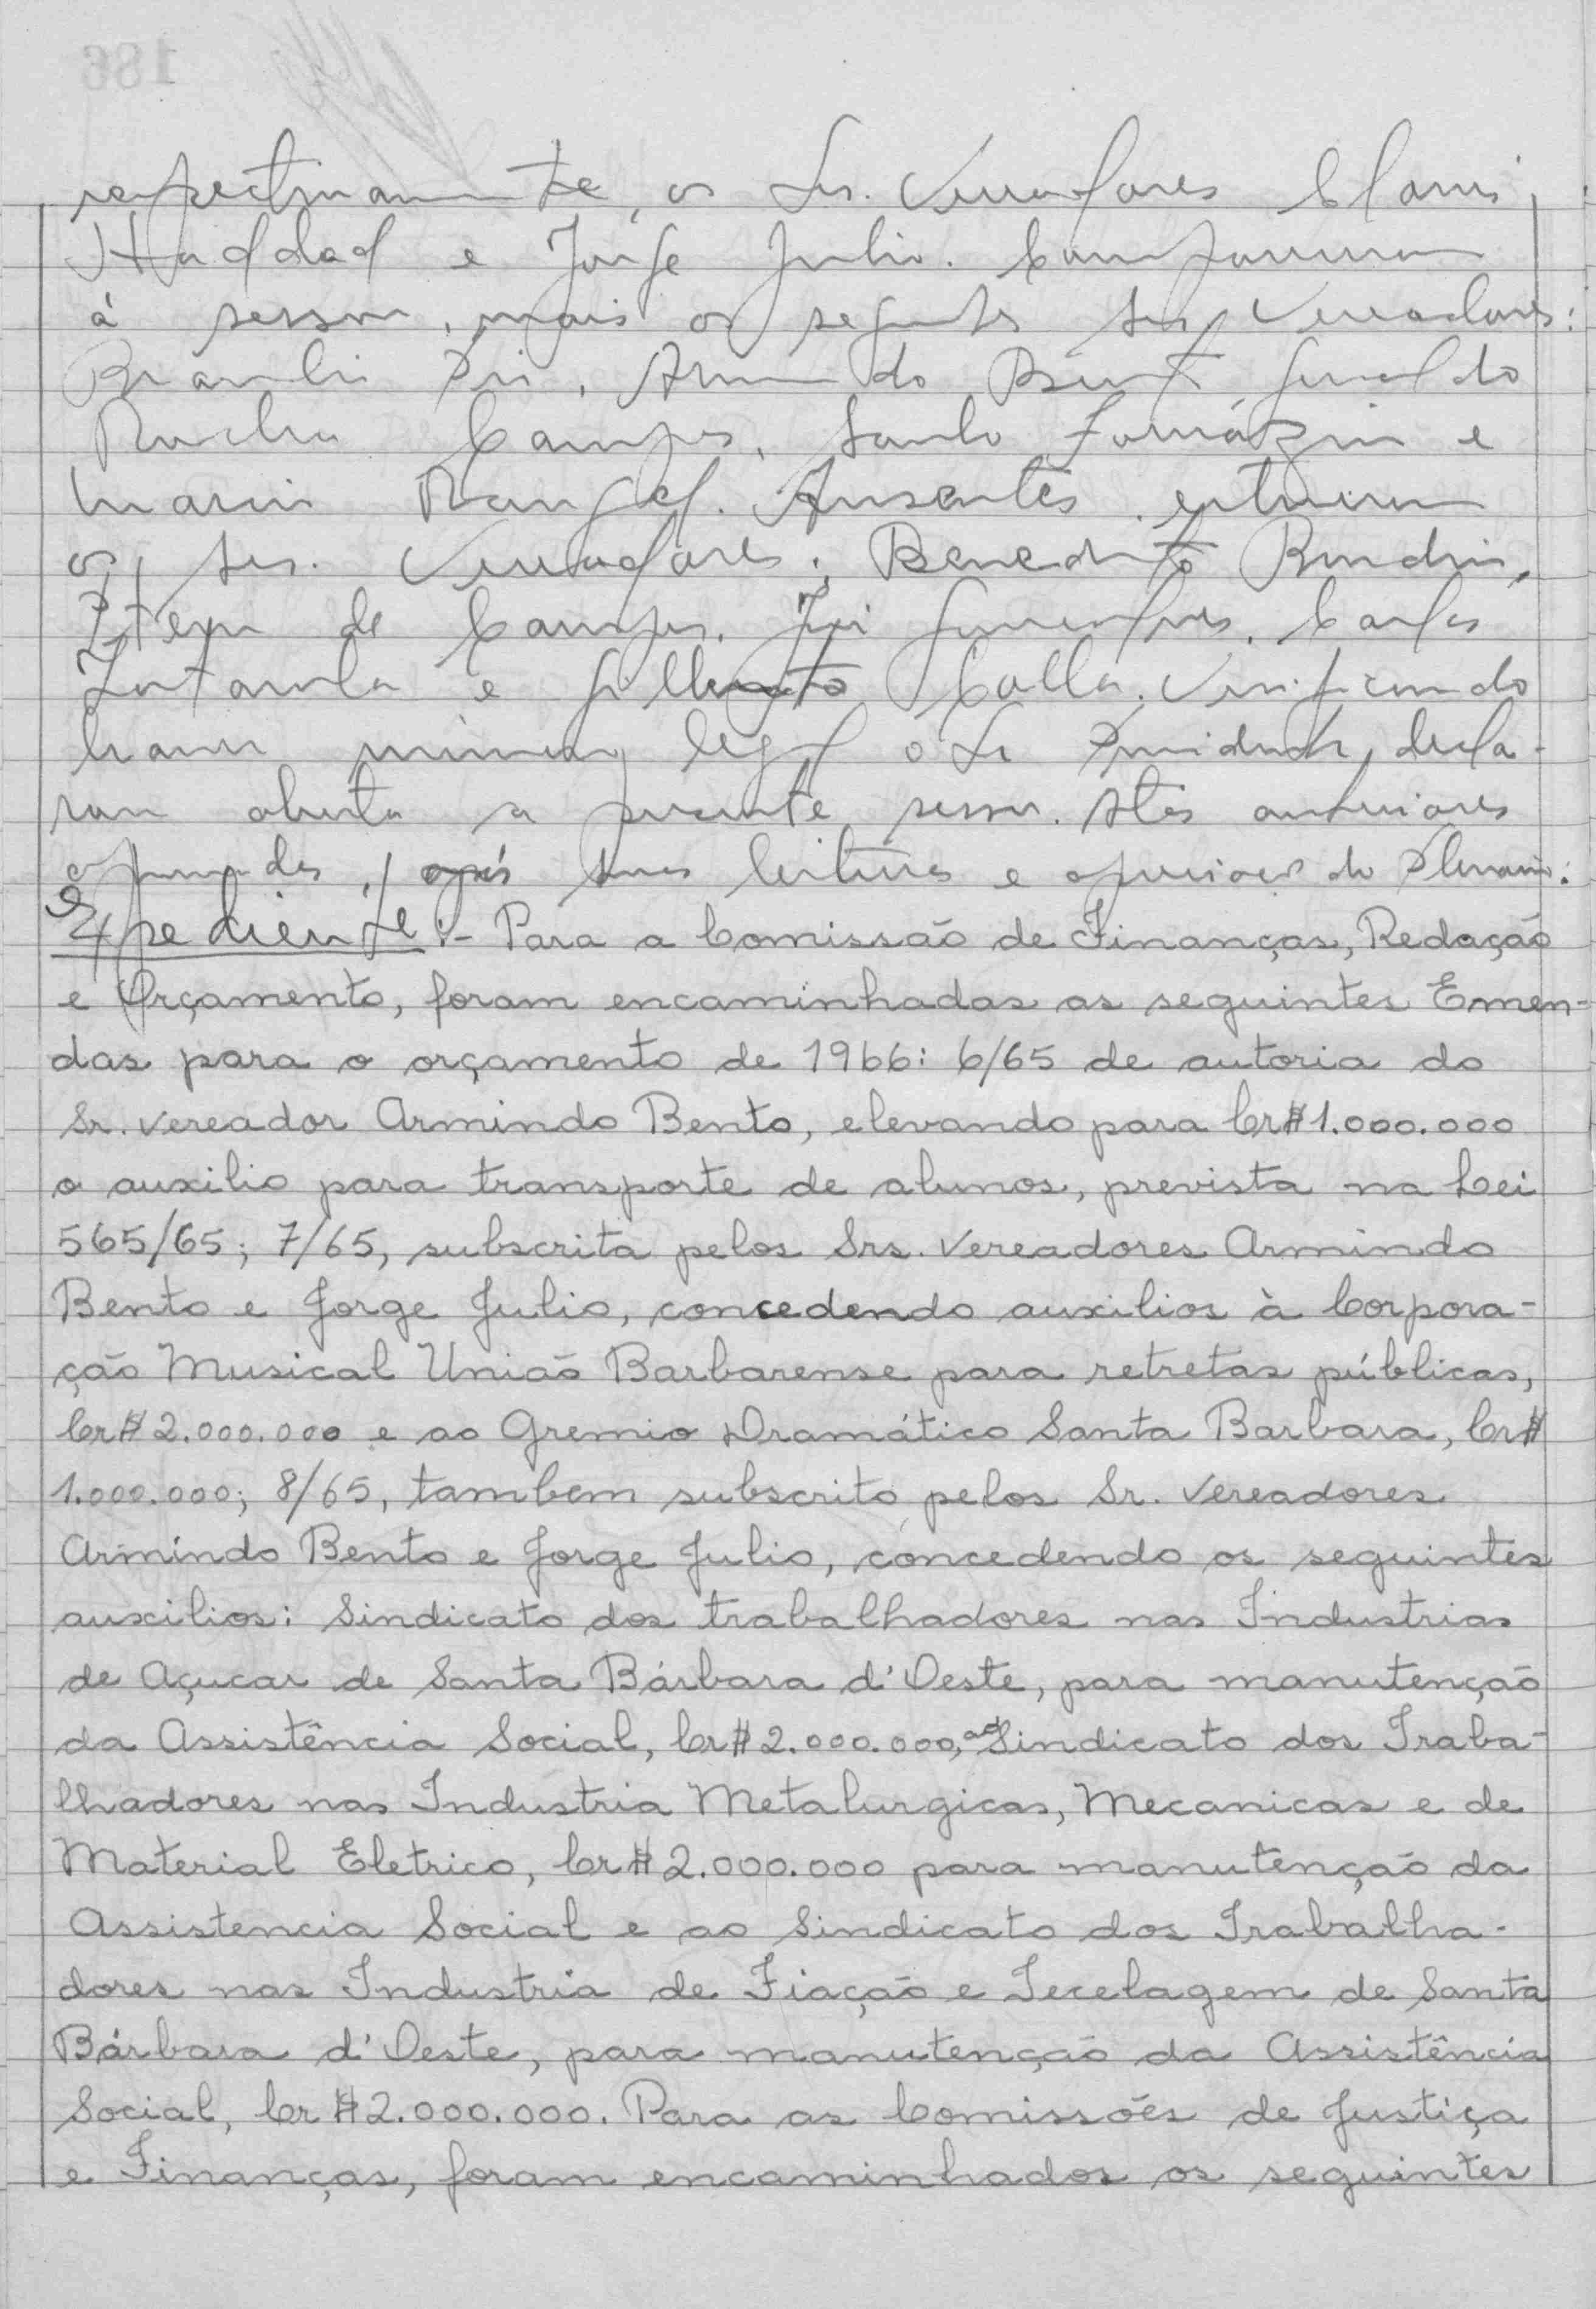 respectivamente, os Srs. Vereadores
Haddad e Jorge Julio. Compareceram
à sessão, mais os seguintes Srs. Vereadores:
Braulio Pio, Armindo Bento, Geraldo
Rocha Campos, e
Mario Rangel. Ausentes estiveram
os Srs. Vereadores: Benedito
de Campos, Carlos
e Gilberto Calla. Verificando
haver número legal o Sr. Presidente, decla-
rou aberta a presente sessão. Atas anteriores
aprovadas, após suas leituras e do Plenário.
Expediente:- Para a Comissão de Finanças, Redação
e Orçamento, foram encaminhadas as seguintes Emen-
das para o orçamento de 1966: 6/65 de autoria do
Sr. vereador Armindo Bento, elevando para Cr$ 1.000.000
o auxilio para transporte de alunos, prevista na Lei
565/65; 7/65, subscrita pelos Srs. Vereadores Armindo
Bento e Jorge Julio, concedendo auxilios à Corpora-
ção Musical União Barbarense para retretas públicas,
Cr$ 2.000.000 e ao Gremio Dramático Santa Barbara, Cr$
1.000.000; 8/65, tambem subscrito pelos Sr. Vereadores
Armindo Bento e Jorge Julio, concedendo os seguintes
auxilios: Sindicato dos trabalhadores nas Industrias
de Açucar de Santa Bárbara d'Oeste, para manutenção
da Assistência Social, Cr$ 2.000.000, ao Sindicato dos Traba-
lhadores nas Industria Metalurgicas, Mecanicas e de
Material Eletrico, Cr$ 2.000.000 para manutenção da
Assistencia Social e ao Sindicato dos Trabalha-
dores nas Industria de Fiação e Tecelagem de Santa
Bárbara d'Oeste, para manutenção da Assistência
Social, Cr$ 2.000.000. Para as Comissões de Justiça
e Finanças, foram encaminhados os seguintes